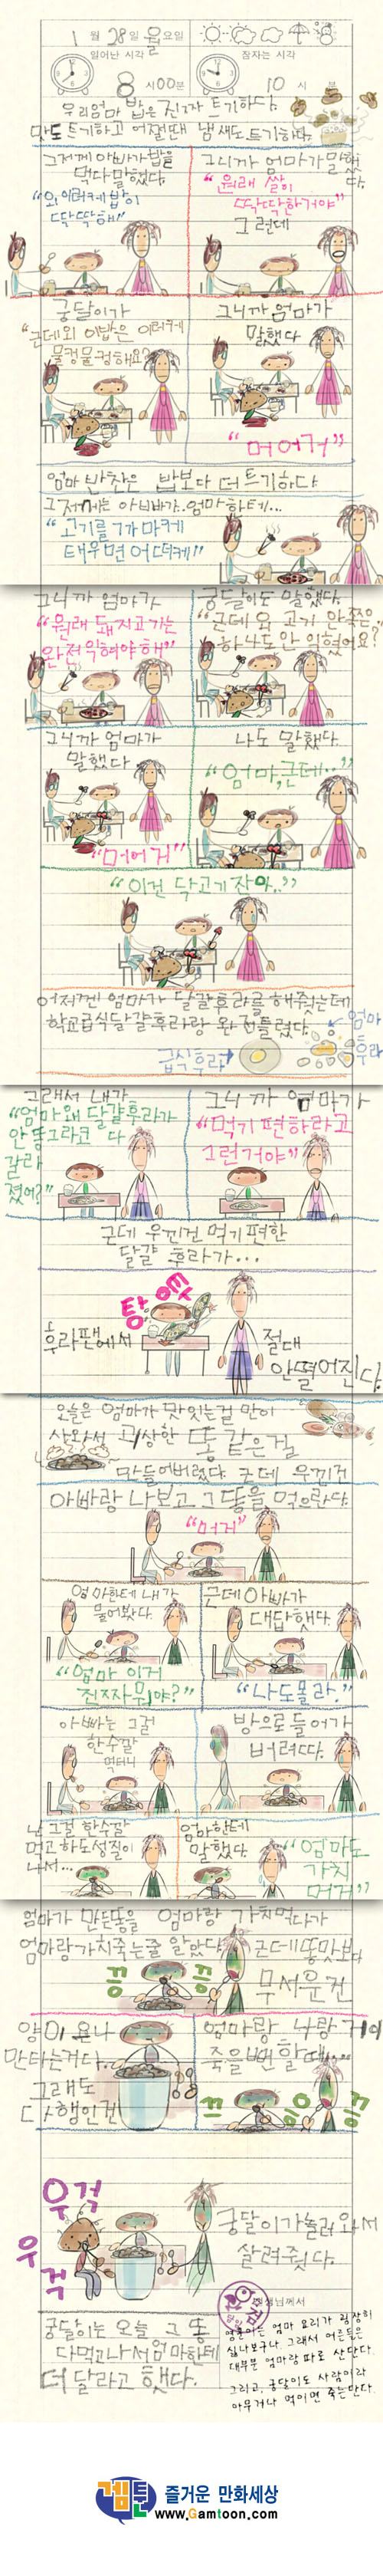 1 월 28 일 월 요일
일어난 시각
잠자는 시각
8 시 00 분
10 시 분
우리엄마 밥은 진짜 트기하다.
맛도 트기하고 어쩔땐 냄새도 트기하다.
그저께 아빠가 밥을
먹다 말했다.
"왜 이러케 밥이
딱딱해"
그니까 엄마가 말했
다.
"원래 쌀이
딱딱한거야"
그런데
궁달이가
"근데 왜 이밥은 이러케
물컹물컹해요?"
그니까 엄마가
말했다
"머어거"
엄마 반찬은 밥보다 더 트기하다
그저께는 아빠가 엄마한테...
"고기를 까마케
태우면 어떠케"
그니까 엄마가
"원래 돼지고기는
완전 익혀야해"
궁달이도 말했다.
"근데 왜 고기 안쪽은..
하나도 안 익혔어요?"
그니까 엄마가
말했다
"머어거"
나도 말했다.
"엄마, 근데.."
"이건 닥고기잔아.."
어저껜 엄마가 달걀후라를 해줫는데
학교급식 달걀후라랑 완전 틀렸다.
급식후라
엄마
후라
그래서 내가
"엄마 왜 달걀후라가
안 동그라코 다
갈라
졌어?"
그니까 엄마가
"먹기 편하라고
그런거야"
근데 우낀건 먹기 편한
달걀 후라가...
후라팬에서
절대
안떨어진다.
오늘은 엄마가 맛잇는걸 만이
사와서 괴상한 똥 같은걸
만들어버렸다. 근데 우낀건
아빠랑 나보고 그 똥을 먹으란다.
"머거"
엄마한테 내가
물어봤다.
"엄마 이거
진짜 뭐야?"
근데 아빠가
대답햇다.
"나도 몰라."
아빠는 그걸
한수깔
먹더니
방으로 들어가
버려따.
난 그걸 한수깔
먹고 하도 성질이
나서...
엄마한테
말했다.
"엄마도
가치
머거"
엄마가 만든똥을 엄마랑 가치먹다가
엄마랑가치죽는줄 알았다. 근데 똥맛보다
무서운건
양이 으나
만타는거다.
그래도
다행인건
엄마랑 나랑 거이
죽을뻔 할때
우걱
우걱
궁달이가 놀러와서
살려줫다.
궁달이는 오늘 그 똥
다먹고나서 엄마한테
더 달라고 햇다.
선생님께서
엄마 요리가 굉장히
싫나보구나. 그래서 어른들은
대부분 엄마랑 따로 산단다.
그리고, 궁달이도 사람이라
아무거나 먹이면 죽는단다.
겜툰 즐거운 만화세상
www.Gamtoon.com